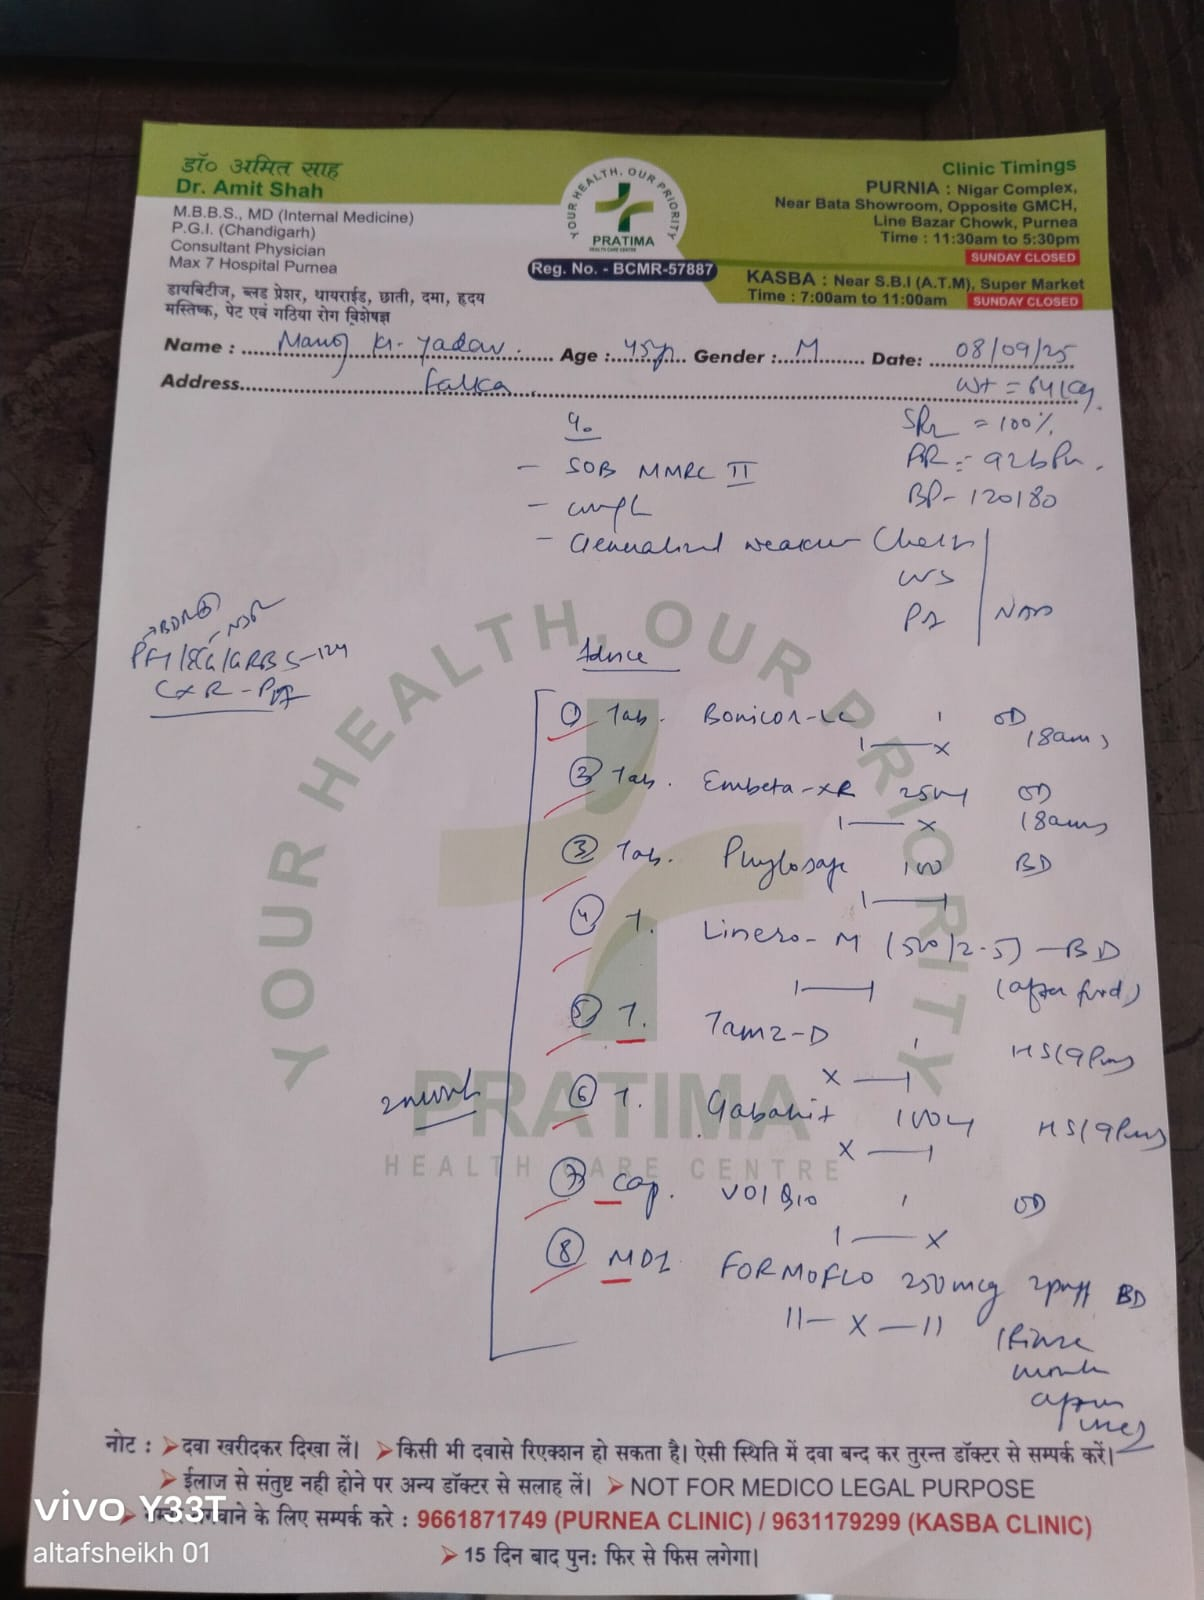 डॉ० अमित साह
Dr. Amit Shah
M.B.B.S., MD (Internal Medicine)
P.G.I. (Chandigarh)
Consultant Physician
Max 7 Hospital Purnea
डायबिटीज, ब्लड प्रेशर, थायराईड, छाती, दमा, हृदय
मस्तिष्क, पेट एवं गठिया रोग विशेषज्ञ
YOUR HEALTH, OUR PRIORITY
PRATIMA
HEALTH CARE CENTRE
Reg. No. - BCMR-57887
Clinic Timings
PURNIA : Nigar Complex,
Near Bata Showroom, Opposite GMCH,
Line Bazar Chowk, Purnea
Time : 11:30am to 5:30pm
SUNDAY CLOSED
KASBA : Near S.B.I (A.T.M), Super Market
Time : 7:00am to 11:00am SUNDAY CLOSED
Name : Manoj Kr. Yadav Age : 45yr Gender : M Date: 08/09/25
Address Falka Wt = 64kg
= 100%
PR = 92bpm
BP - 120/80
- SOB MMRC II
- cough
- Generalized weakness
Chest
PA NAD
GRBS-124
CXR-PA
Advice
① Tab. OD (8am)
1 — X
② Tab. Embeta-XR 25 OD (8am)
1 — X
③ Tab. Phylosafe 100 BD
④ T. Linero-M (500/2.5) - BD
(after food)
⑤ T. Tamz-D HS (9pm)
X — 1
⑥ T. 100 HS (9pm)
X — 1
⑦ Cap. 1 OD
1 — X
⑧ MDI FORMOFLO 250mcg 2puff BD
11 — X — 11 (Rinse
mouth
after
use)
YOUR HEALTH, OUR PRIORITY
PRATIMA
HEALTH CARE CENTRE
नोट : दवा खरीदकर दिखा लें। किसी भी दवासे रिएक्शन हो सकता है। ऐसी स्थिति में दवा बन्द कर तुरन्त डॉक्टर से सम्पर्क करें।
ईलाज से संतुष्ट नही होने पर अन्य डॉक्टर से सलाह लें। NOT FOR MEDICO LEGAL PURPOSE
के लिए सम्पर्क करे : 9661871749 (PURNEA CLINIC) / 9631179299 (KASBA CLINIC)
15 दिन बाद पुनः फिर से फिस लगेगा।
vivo Y33T
altafsheikh 01